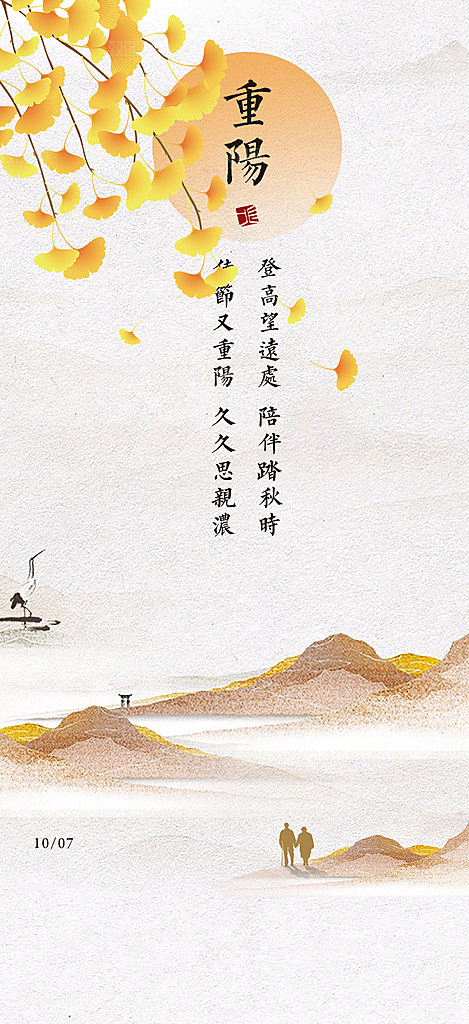 重陽
登高望遠處 陪伴踏秋時
節又重陽 久久思親濃
10/07